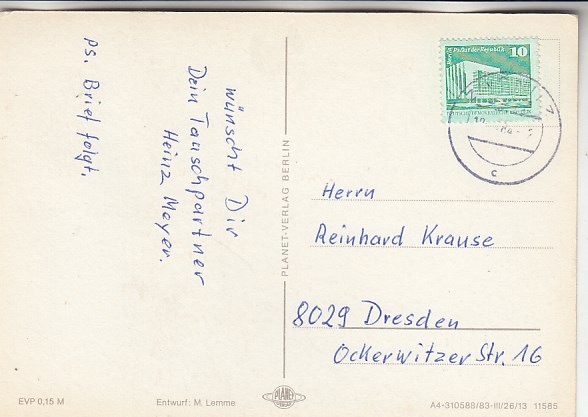 wünscht Dir
Dein Tauschpartner
Heinz Mayer.
Ps. Brief folgt.
PLANET-VERLAG BERLIN
Palast der Republik
10
Herrn
Reinhard Krause
8029 Dresden
Ockerwitzer Str. 16
c
EVP 0,15 M
Entwurf: M. Lemme
PLANET
A4-310588/83-III/26/13 11585